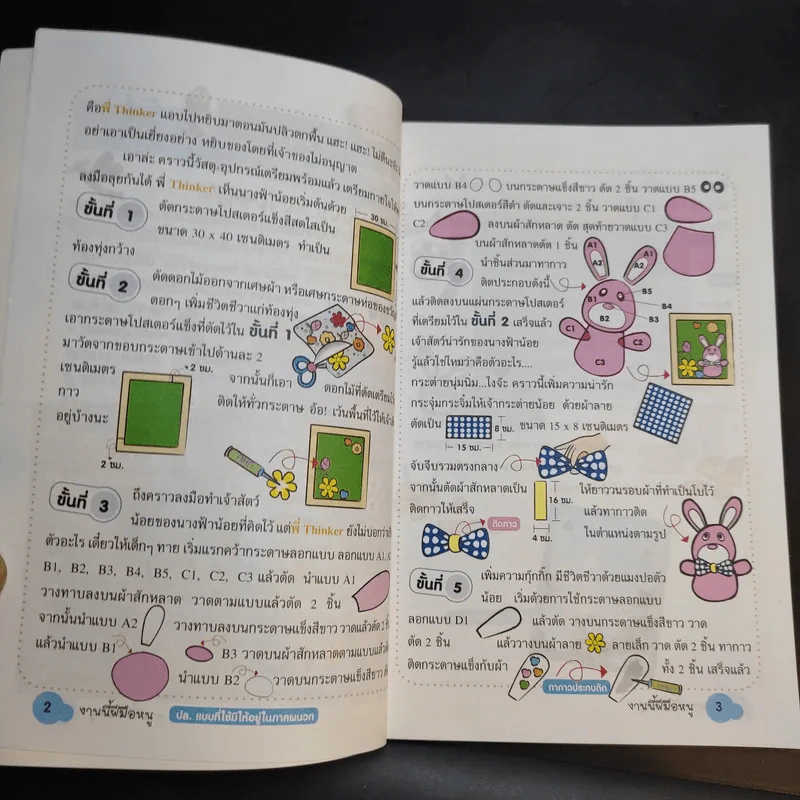 คือพี่ Thinker แอบไปหยิบมาตอนมันปลิวตกพื้น แฮะ! แฮะ! ไม่ดีนะจ๊ะ
อย่าเอาเป็นเยี่ยงอย่าง หยิบของโดยที่เจ้าของไม่อนุญาต
เอาล่ะ คราวนี้วัสดุ-อุปกรณ์เตรียมพร้อมแล้ว เตรียมกายใจให้
ลงมือลุยกันได้ พี่ Thinker เห็นนางฟ้าน้อยเริ่มต้นด้วย
30 ซม.
ขั้นที่ 1
ตัดกระดาษโปสเตอร์แข็งสีสดใสเป็น
ขนาด 30 x 40 เซนติเมตร ทำเป็น
ท้องทุ่งกว้าง
ขั้นที่ 2
ตัดดอกไม้ออกจากเศษผ้า หรือเศษกระดาษห่อของขวัญ
ดอกๆ เพิ่มชีวิตชีวาแก่ท้องทุ่ง
เอากระดาษโปสเตอร์แข็งที่ตัดไว้ใน ขั้นที่ 1
มาวัดจากขอบกระดาษเข้าไปด้านละ 2
เซนติเมตร
2 ซม.
จากนั้นก็เอา
ดอกไม้ที่ตัดเตรียมไว้
กาว
ติดให้ทั่วกระดาษ อ้อ! เว้นพื้นที่ไว้ให้เจ้า
อยู่บ้างนะ
2 ซม.
ขั้นที่ 3
ถึงคราวลงมือทำเจ้าสัตว์
น้อยของนางฟ้าน้อยที่คิดไว้ แต่พี่ Thinker ยังไม่บอกว่า
ตัวอะไร เดี๋ยวให้เด็กๆ ทาย เริ่มแรกคว้ากระดาษลอกแบบ ลอกแบบ A1,
B1, B2, B3, B4, B5, C1, C2, C3 แล้วตัด นำแบบ A1
วางทาบลงบนผ้าสักหลาด วาดตามแบบแล้วตัด 2 ชิ้น
จากนั้นนำแบบ A2
วางทาบลงบนกระดาษแข็งสีขาว วาดแล้วตัด 2
แล้วนำแบบ B1
B3 วาดบนผ้าสักหลาดตามแบบแล้วตัด
นำแบบ B2
วาดบนกระดาษแข็งสีขาว
2
งานนี้ฝีมือหนู
ปล. แบบที่ใช้มีให้อยู่ในภาคผนวก
วาดแบบ B4
บนกระดาษแข็งสีขาว ตัด 2 ชิ้น วาดแบบ B5
บนกระดาษโปสเตอร์สีดำ ตัดและเจาะ 2 ชิ้น วาดแบบ C1
C2
ลงบนผ้าสักหลาด ตัด สุดท้ายวาดแบบ C3
บนผ้าสักหลาดตัด 1 ชิ้น
ขั้นที่ 4
นำชิ้นส่วนมาทากาว
ติดประกอบดังนี้
แล้วติดลงบนแผ่นกระดาษโปสเตอร์
ที่เตรียมไว้ใน ขั้นที่ 2 เสร็จแล้ว
เจ้าสัตว์น่ารักของนางฟ้าน้อย
รู้แล้วใช่ไหมว่าคือตัวอะไร....
A1
A1
A2
A2
B5
B1
B4
B2
B3
C1
C2
C3
กระต่ายนุ่มนิ่ม...ไงจ๊ะ คราวนี้เพิ่มความน่ารัก
กระจุ๋มกระจิ๋มให้เจ้ากระต่ายน้อย ด้วยผ้าลาย
ตัดเป็น
8 ซม.
ขนาด 15 x 8 เซนติเมตร
15 ซม.
จับจีบรวมตรงกลาง
จากนั้นตัดผ้าสักหลาดเป็น
16 ซม.
ให้ยาววนรอบผ้าที่ทำเป็นโบไว้
ติดกาวให้เสร็จ
แล้วทากาวติด
ติดกาว
4 ซม.
ในตำแหน่งตามรูป
ขั้นที่ 5
เพิ่มความกุ๊กกิ๊ก มีชีวิตชีวาด้วยแมงปอตัว
น้อย เริ่มด้วยการใช้กระดาษลอกแบบ
ลอกแบบ D1
แล้วตัด วางบนกระดาษแข็งสีขาว วาด
ตัด 2 ชิ้น
แล้ววางบนผ้าลาย
ลายเล็ก วาด ตัด 2 ชิ้น ทากาว
ติดกระดาษแข็งกับผ้า
ทั้ง 2 ชิ้น เสร็จแล้ว
ทากาวประกบติด
งานนี้ฝีมือหนู
3